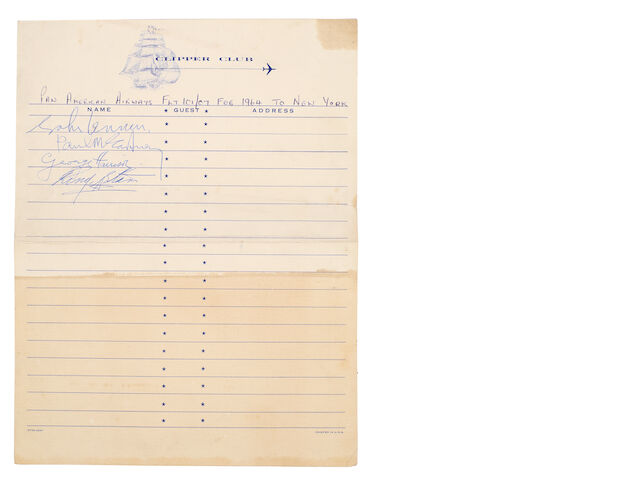 CLIPPER CLUB
PAN AMERICAN AIRWAYS FLT 101/07 FEB 1964 TO NEW YORK
NAME ★ GUEST ★ ADDRESS
John Lennon.
Paul McCartney
George Harrison
Ringo Starr